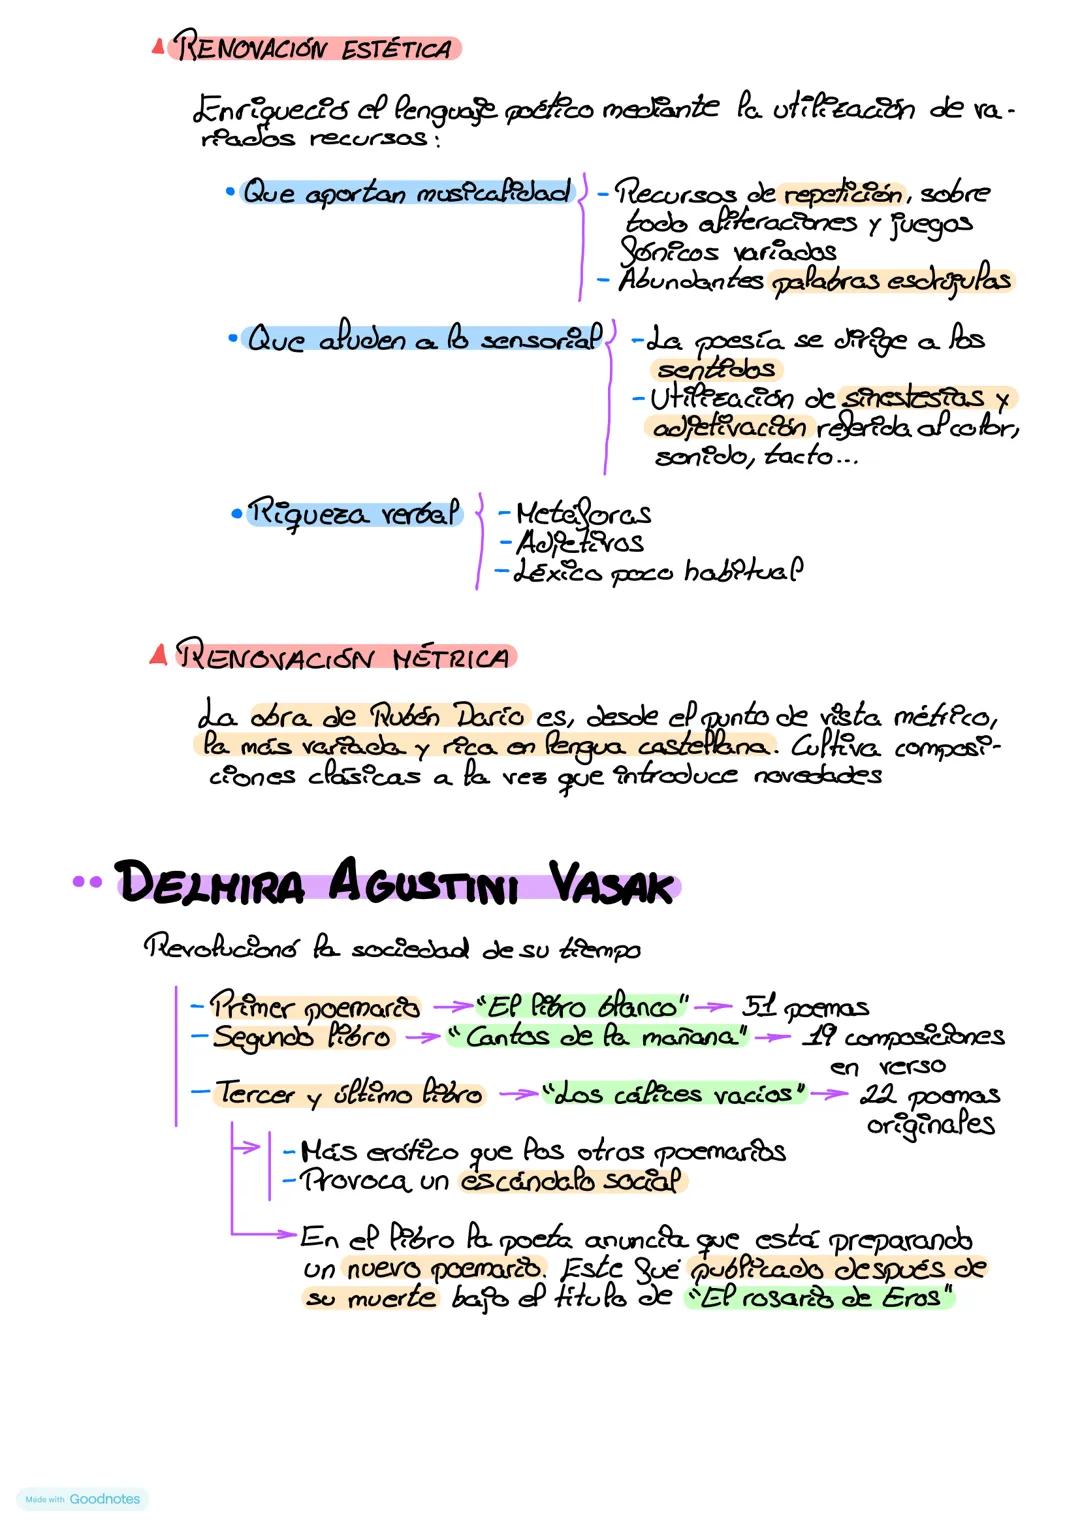 RENOVACIÓN ESTÉTICA
Enriqueció el lenguaje poético mediante la utilización de va-
riados recursos:
• Que aportan musicalidad
- Recursos de repetición, sobre
todo aliteraciones y juegos
fónicos variados
- Abundantes palabras esdrújulas
• Que aluden a lo sensorial
- La poesía se dirige a los
sentidos
- Utilización de sinestesias y
adjetivación referida al color,
sonido, tacto...
• Riqueza verbal
- Metáforas
- Adjetivos
- Léxico poco habitual
RENOVACIÓN MÉTRICA
La obra de Rubén Darío es, desde el punto de vista métrico,
la más variada y rica en lengua castellana. Cultiva composi-
ciones clásicas a la vez que introduce novedades
DELMIRA AGUSTINI VASAK
Revolucionó la sociedad de su tiempo
- Primer poemario → "El libro blanco" → 51 poemas
- Segundo libro → "Cantos de la mañana" → 19 composiciones
en verso
- Tercer y último libro → "Los cálices vacíos" → 22 poemas
originales
- Más erótico que los otros poemarios
- Provoca un escándalo social
En el libro la poeta anuncia que está preparando
un nuevo poemario. Este fué publicado después de
su muerte bajo el título de "El rosario de Eros"
Made with Goodnotes